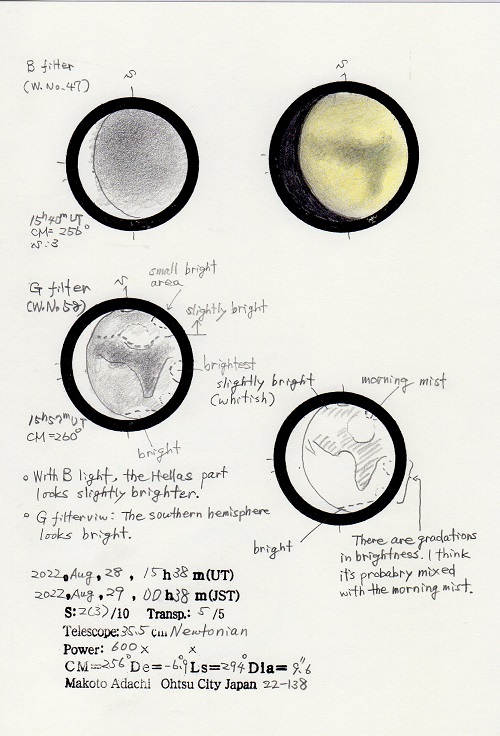 B filter
(W.No.47)
S
S
15h40m UT
CM=256°
S:3
G filter
(W.No58)
S
small bright
area
slightly bright
brightest
slightly bright
(whitish)
morning mist
15h57m UT
CM=260°
bright
∘ With B light, the Hellas part
looks slightly brighter.
∘ G filterviw: The southern hemisphere
looks bright.
bright
There are gradations
in brightness. I think
it's probabry mixed
with the morning mist.
2022, Aug, 28, 15h38m(UT)
2022, Aug, 29, 00h38m(JST)
S:2(3)/10 Transp.: 5/5
Telescope:35.5 cm Newtonian
Power: 600x x
CM=256° De=-6.9° Ls=294° Dia=9."6
Makoto Adachi Ohtsu City Japan 22-138